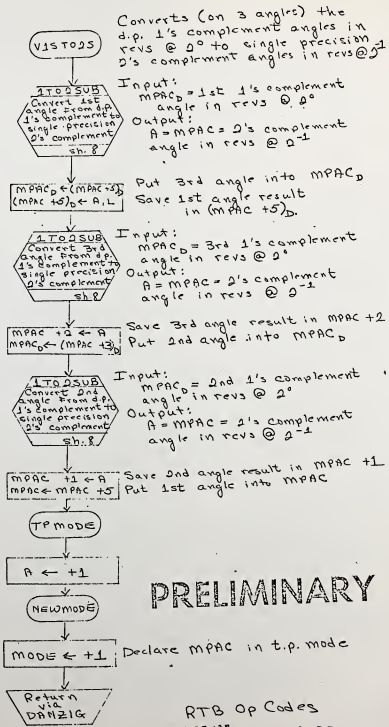 V1STO2S
Converts (on 3 angles) the
d.p. 1's complement angles in
revs @ 2⁰ to single precision
2's complement angles in revs @ 2⁻¹
1TO2SUB
Convert 1st
angle from d.p.
1's complement to
single precision
2's complement
sh. 8
Input:
MPAC_D = 1st 1's complement
angle in revs @ 2⁰
Output:
A = MPAC = 2's complement
angle in revs @ 2⁻¹
MPAC_D ← (MPAC +5)_D
(MPAC +5)_D ← A,L
Put 3rd angle into MPAC_D
Save 1st angle result
in (MPAC +5)_D.
1TO2SUB
Convert 3rd
angle from d.p.
1's complement to
single precision
2's complement
sh. 8
Input:
MPAC_D = 3rd 1's complement
angle in revs @ 2⁰
Output:
A = MPAC = 2's complement
angle in revs @ 2⁻¹
MPAC +2 ← A
MPAC_D ← (MPAC +3)_D
Save 3rd angle result in MPAC +2
Put 2nd angle into MPAC_D
1TO2SUB
Convert 2nd
angle from d.p.
1's complement to
single precision
2's complement
sh. 8
Input:
MPAC_D = 2nd 1's complement
angle in revs @ 2⁰
Output:
A = MPAC = 2's complement
angle in revs @ 2⁻¹
MPAC +1 ← A
MPAC ← MPAC +5
Save 2nd angle result in MPAC +1
Put 1st angle into MPAC
TPMODE
A ← +1
PRELIMINARY
NEWMODE
MODE ← +1
Declare MPAC in t.p. mode
Return
via
DANZIG
RTB Op Codes